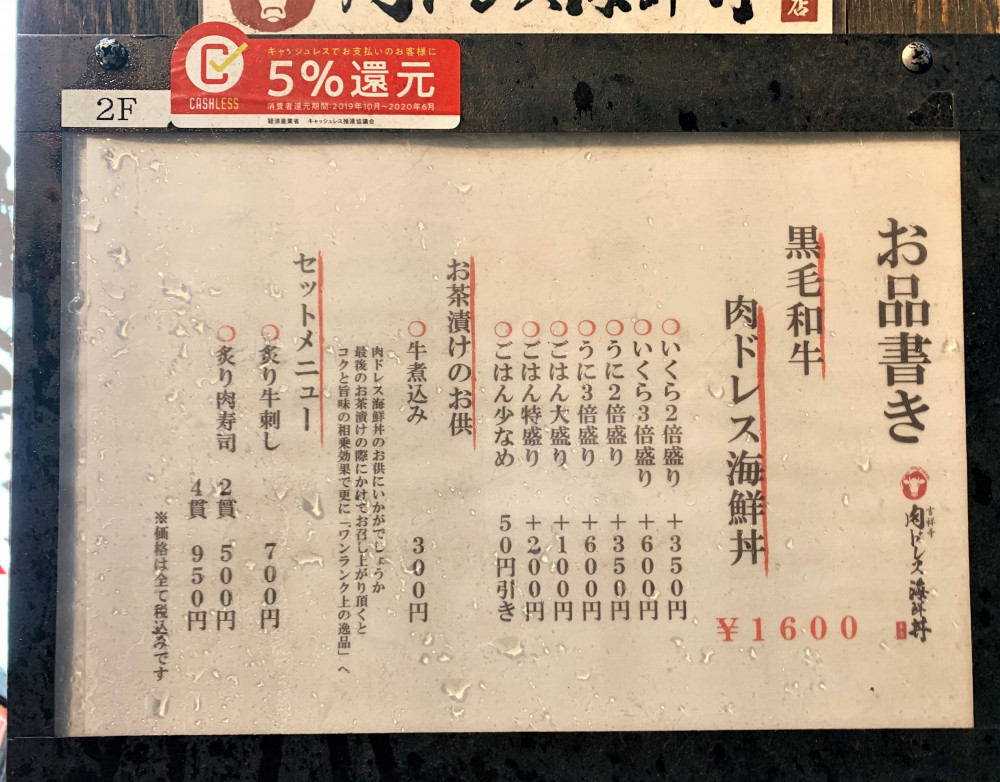 店
2F
CASHLESS
キャッシュレスでお支払いのお客様に
5%還元
消費者還元期間:2019年10月~2020年6月
経済産業省 キャッシュレス推進協議会
お品書き
吉祥寺
肉ドレス海鮮丼
黒毛和牛
肉ドレス海鮮丼
¥1600
○いくら2倍盛り +350円
○いくら3倍盛り +600円
○うに2倍盛り +350円
○うに3倍盛り +600円
○ごはん大盛り +100円
○ごはん特盛り +200円
○ごはん少なめ 50円引き
お茶漬けのお供
○牛煮込み 300円
肉ドレス海鮮丼のお供にいかがでしょうか
最後のお茶漬けの際にかけてお召し上がり頂くと
コクと旨味の相乗効果で更に「ワンランク上の逸品」へ
セットメニュー
○炙り牛刺し 700円
○炙り肉寿司 2貫 500円
4貫 950円
※価格は全て税込みです